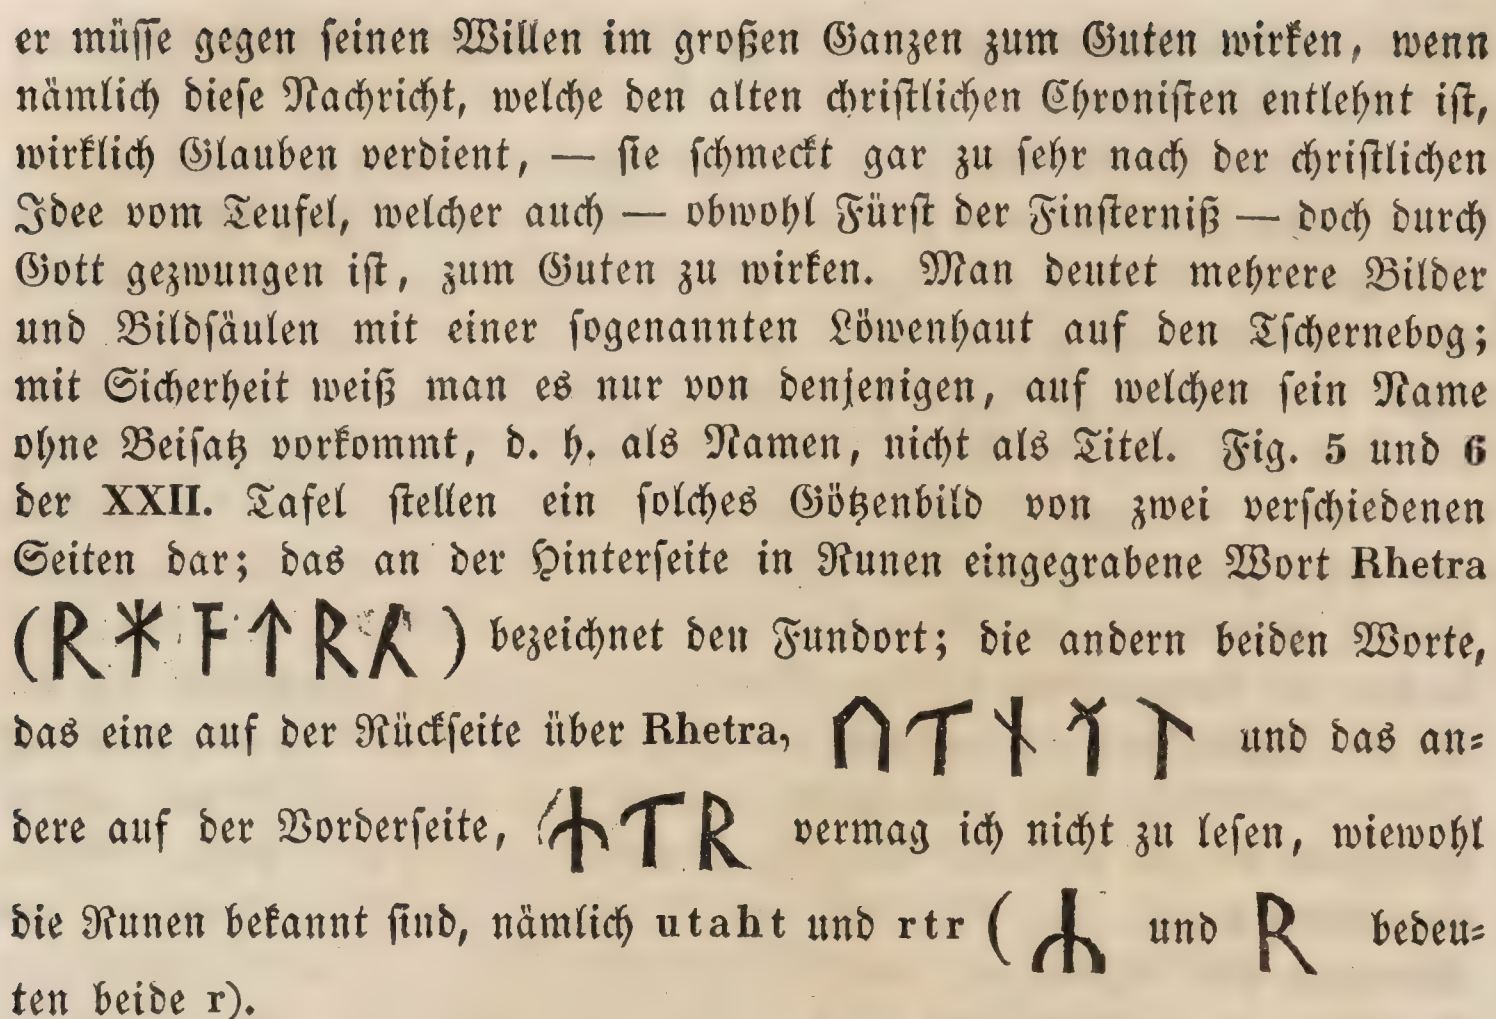 er müſſe gegen ſeinen Willen im großen Ganzen zum Guten wirken, wenn
nämlich dieſe Nachricht, welche den alten chriſtlichen Chroniſten entlehnt iſt,
wirklich Glauben verdient, — ſie ſchmeckt gar zu ſehr nach der chriſtlichen
Idee vom Teufel, welcher auch — obwohl Fürſt der Finſterniß — doch durch
Gott gezwungen iſt, zum Guten zu wirken. Man deutet mehrere Bilder
und Bildſäulen mit einer ſogenannten Löwenhaut auf den Tſchernebog;
mit Sicherheit weiß man es nur von denjenigen, auf welchen ſein Name
ohne Beiſatz vorkommt, d. h. als Namen, nicht als Titel. Fig. 5 und 6
der XXII. Tafel ſtellen ein ſolches Götzenbild von zwei verſchiedenen
Seiten dar; das an der Hinterſeite in Runen eingegrabene Wort Rhetra
(ᚱᚼᚨᛏᚱ) bezeichnet den Fundort; die andern beiden Worte,
das eine auf der Rückſeite über Rhetra, ᚢᛐᚾ und das an⸗
dere auf der Vorderſeite, ᛦᛐᚱ vermag ich nicht zu leſen, wiewohl
die Runen bekannt ſind, nämlich utaht und rtr (ᛦ und ᚱ bedeu⸗
ten beide r).